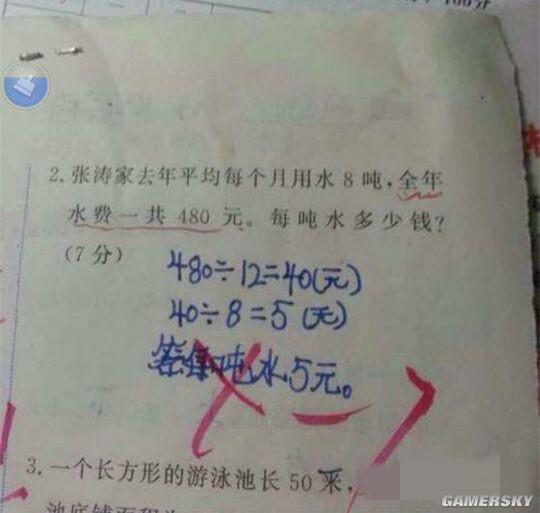 2. 张涛家去年平均每个月用水 8 吨，全年
水费一共 480 元。每吨水多少钱？
(7分)
480÷12=40(元)
40÷8=5(元)
答:每吨水5元。
3. 一个长方形的游泳池长 50 米，
GAMERSKY